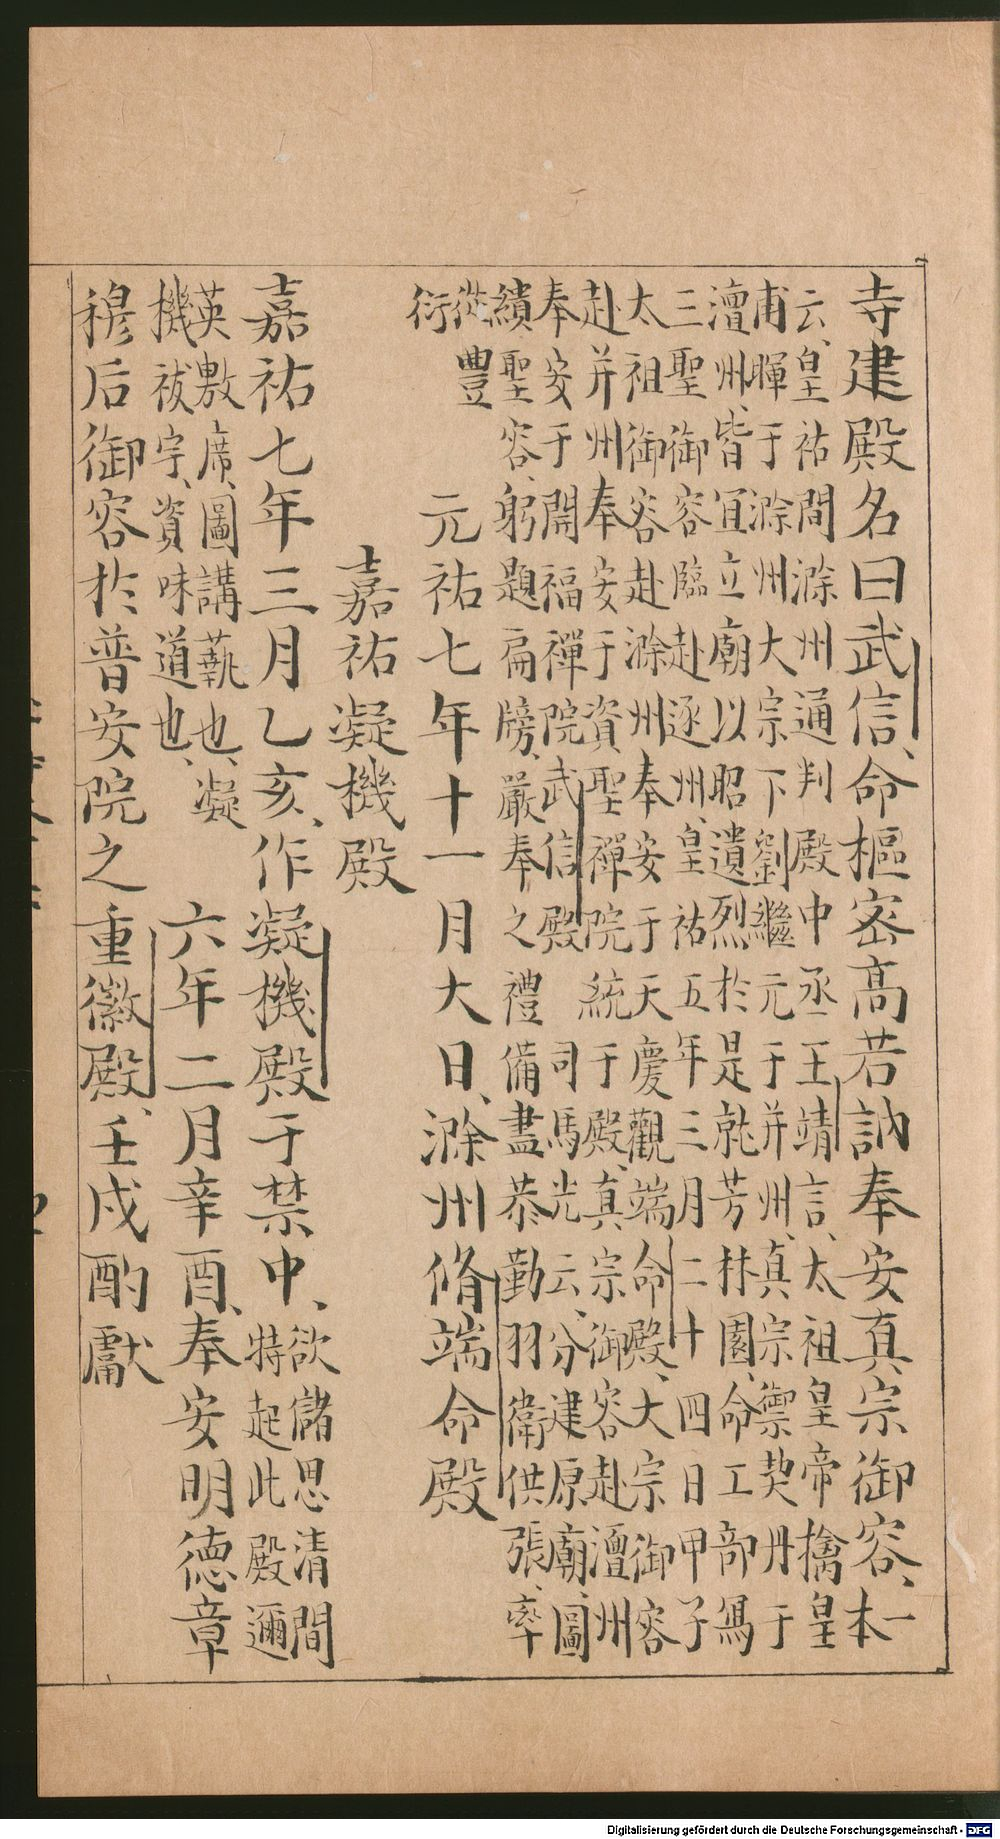 寺建殿名曰武信、命樞密高若訥奉安真宗御容、一本
云、皇祐間滁州通判殿中丞王靖言、太祖皇帝擒皇
甫暉于滁州大宗下劉繼元于并州、真宗禦契丹于
澶州、皆宜立廟以昭遺烈於是就芳林園、命工部寫
三聖御容臨赴逐州、皇祐五年三月二十四日甲子
太祖御容赴滁州奉安于天慶觀端命殿、大宗御容
赴并州奉安于資聖禪院統于殿、真宗御容赴澶州
奉安于開福禪院武信殿 司馬光云、分建原廟、圖
繢聖容、躬題扁牓、嚴奉之禮備盡恭勤羽衛供張、率
從豐
衍
元祐七年十一月大日、滁州脩端命殿
嘉祐凝機殿
嘉祐七年三月乙亥、作凝機殿于禁中、欲儲思清間
特起此殿邇
英敷席、圖講蓺也、凝
機祓宇、資味道也、
六年二月辛酉、奉安明德章
穆后御容於普安院之重徽殿、壬戌酌獻
Digitalisierung gefördert durch die Deutsche Forschungsgemeinschaft - DFG